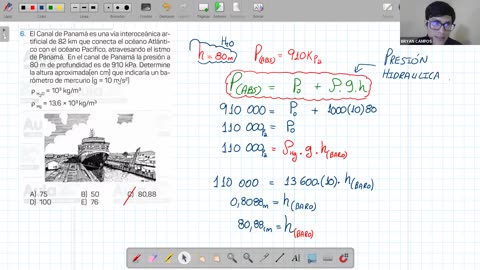 6. El Canal de Panamá es una vía interoceánica ar-
tificial de 82 km que conecta el océano Atlánti-
co con el océano Pacifico, atravesando el istmo
de Panamá. En el canal de Panamá la presión a
80 m de profundidad es de 910 kPa. Determine
la altura aproximada[en cm] que indicaría un ba-
rómetro de mercurio [g = 10 m/s²]
ρ H₂O = 10³ kg/m³
ρ Hg = 13,6 × 10³ kg/m³
A) 75 B) 50 C) 80.88
D) 100 E) 76
H₂O
h = 80m
P(ABS) = 910 KPa
PRESIÓN
HIDRAULICA
P(ABS) = P₀ + ρ.g.h
910 000 = P₀ + 1000(10)80
110 000 Pa = P₀
110 000 Pa = ρHg . g . h(BARO)
110 000 = 13 600.(10). h(BARO)
0,8088 m = h(BARO)
80,88 cm = h(BARO)
BRYAN CAMPOS